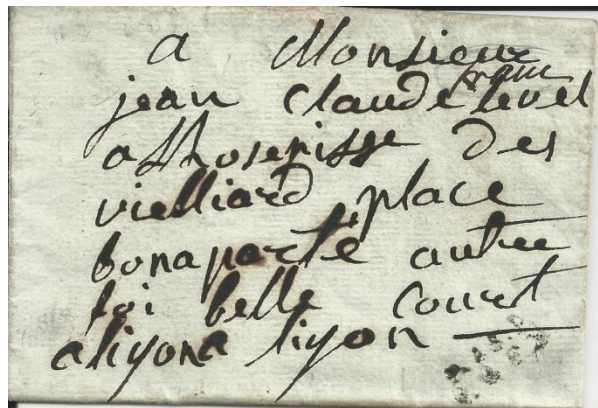 a Monsieur
jean claude
a lhosepisse des
vielliard place
bonaparte autre
foi belle court
a liyon a liyon